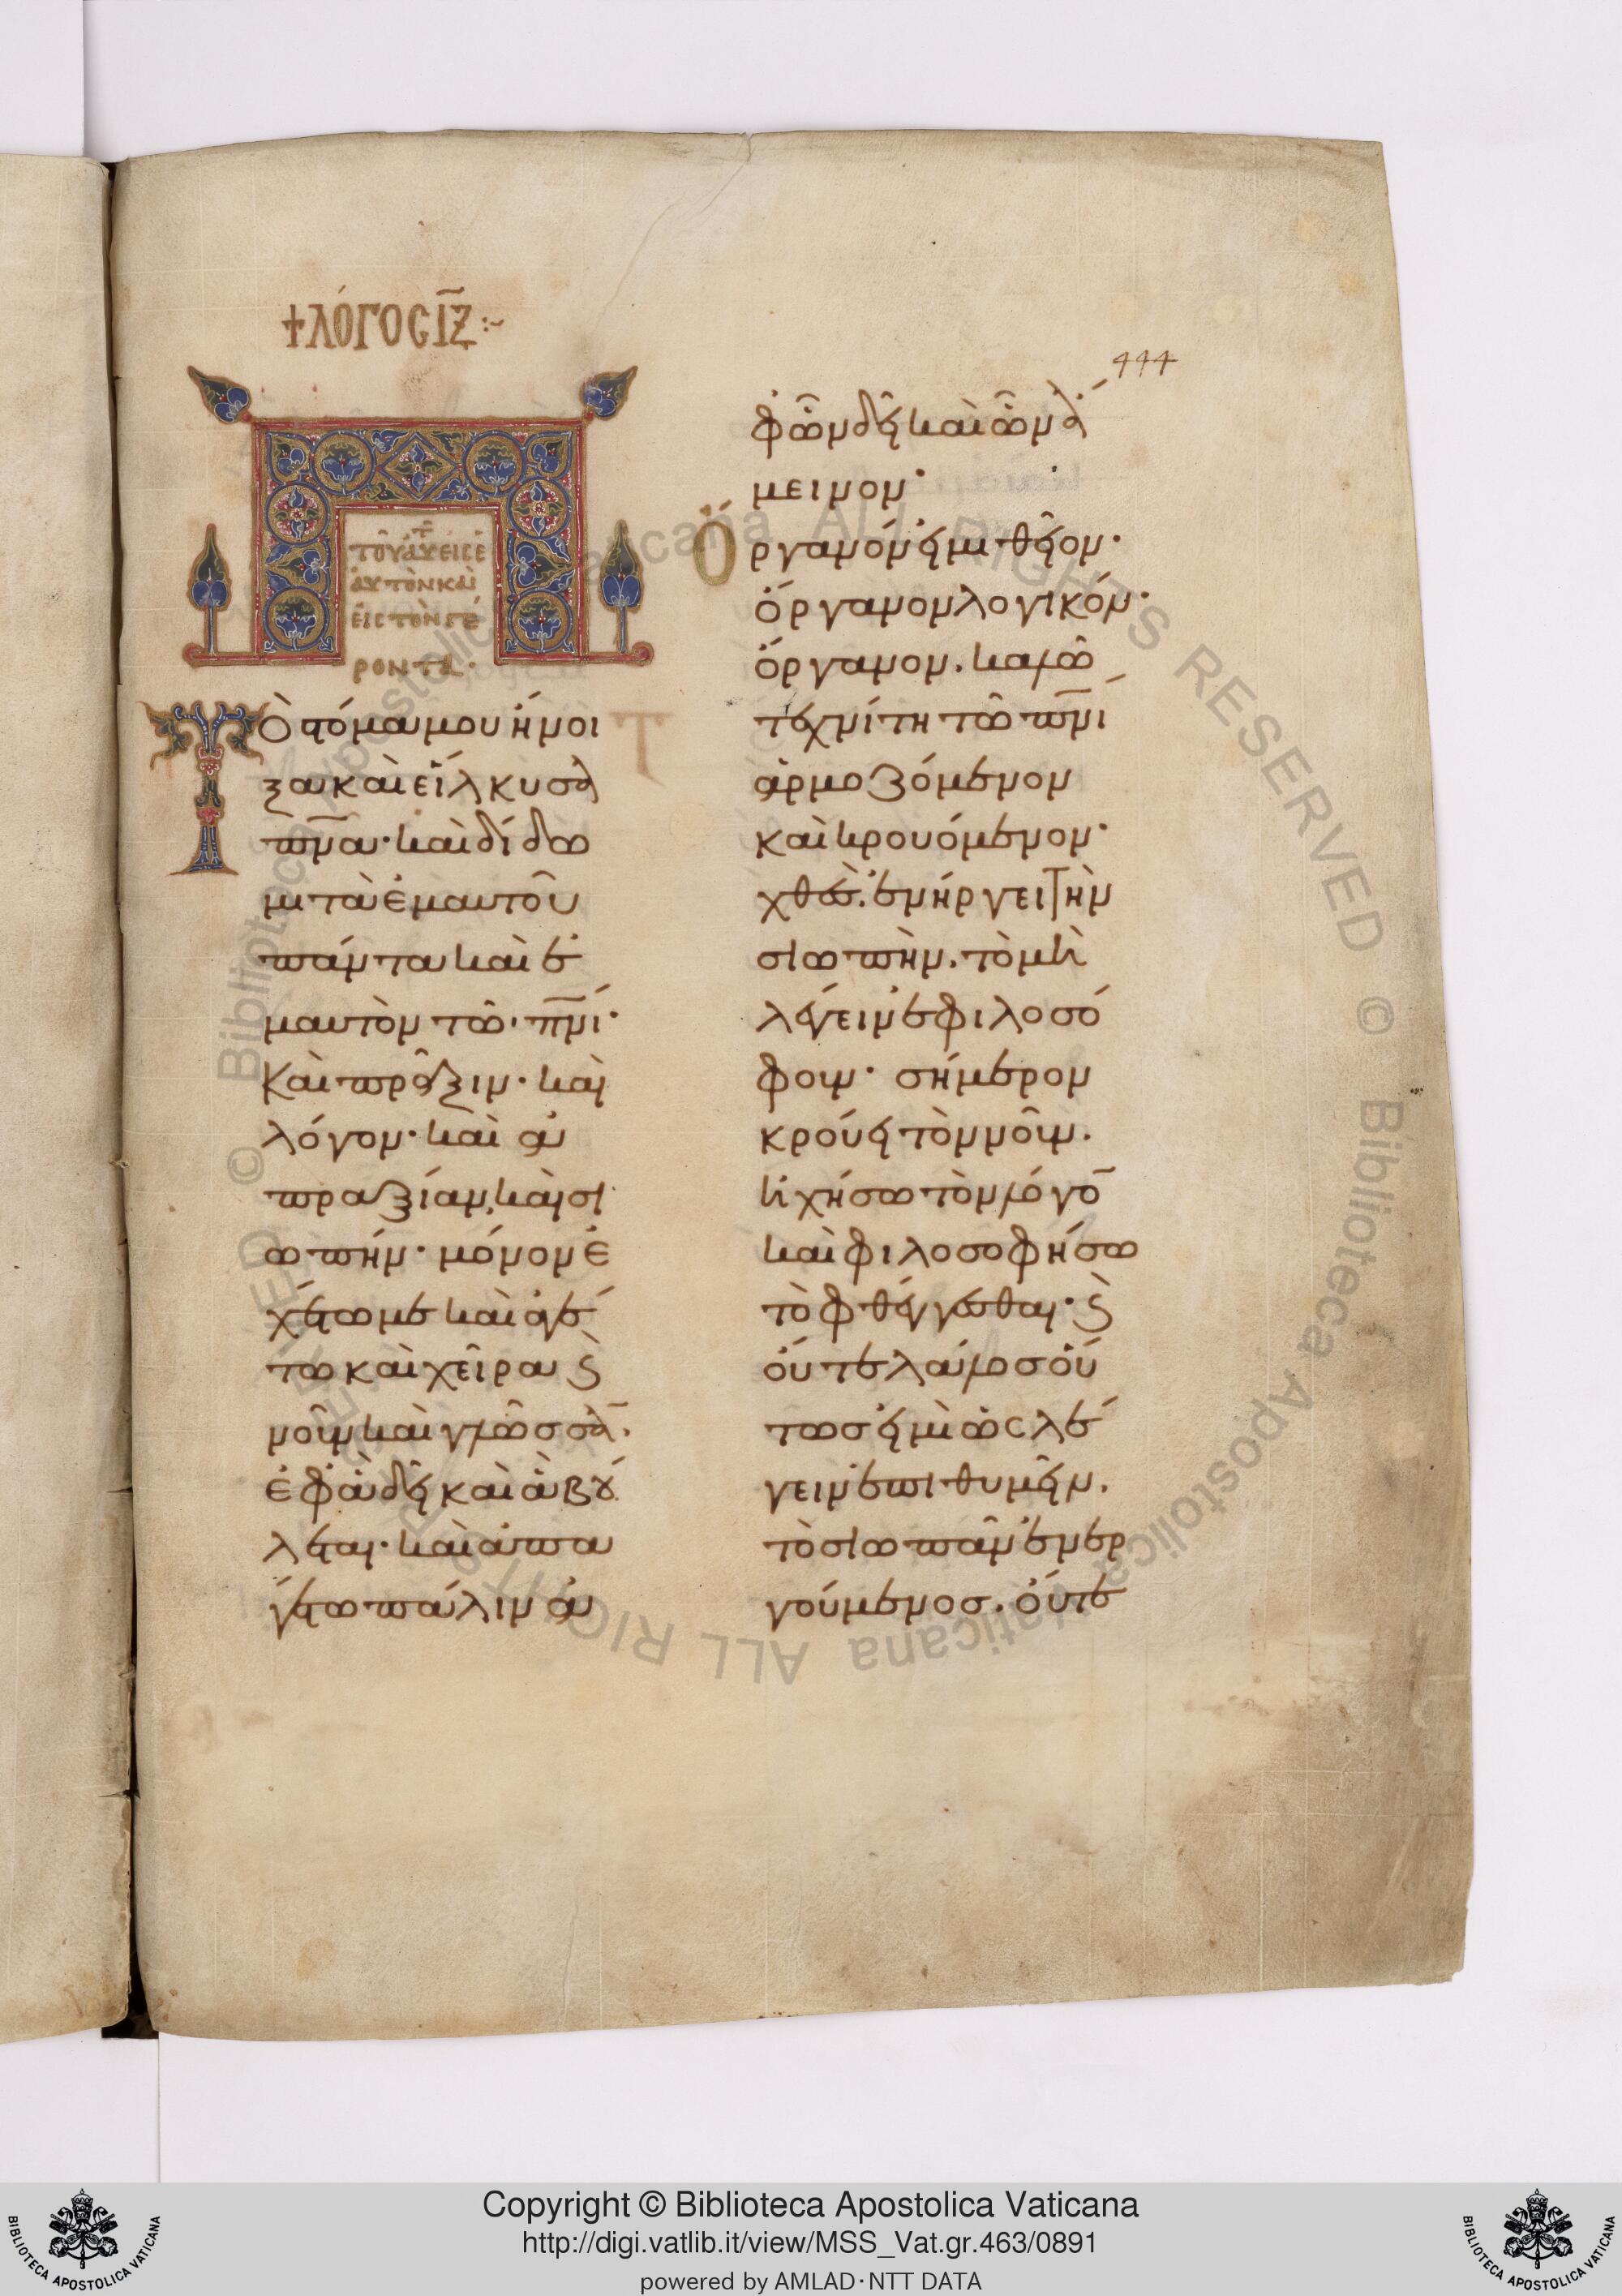 + ΛΌΓΟC ΙΖ :~
+
ΤΟΥ ΑΥ ΕΙC Ε
ΑΥΤΟΝ ΚΑΙ
ΕΙC ΤΟΝ ΓΕ
ΡΟΝΤΑ ·
ΤὸΣτόμα μου ἤνοι
ξα καὶ εἵλκυσα
πνα· καὶ δίδω
μι τὰ ἐμαυτοῦ
πάντα καὶ ἐ
μαυτὸν τῶ πνι·
Καὶ πρᾶξιν· καὶ
λόγον· καὶ ἀ
πραξίαν, καὶ σι
ωπήν· μόνον ἐ
χέτω με καὶ ἀγέ
τω καὶ χεῖρα ϛ
νοῦν καὶ γλῶσσαν.
ἐφʼ ἃ δεῖ καὶ ἃ βού
λεται· καὶ ἀπα
γέτω πάλιν ἀ
444
φʼ ὧν δεῖ καὶ ὧν ἄ
μεινον·
Ὄργανόν εἰμι θεῖον·
ὄργανον λογικόν·
ὄργανον. καλῶ
τεχνίτη τῶ πνι
ἁρμοζόμενον
καὶ κρουόμενον·
χθές. ἐνήργει τὴν
σιωπὴν. τὸ μὴ
λέγειν ἐφιλοσό
φουν· σήμερον
κρούει τὸν νοῦν.
ἠχήσω τὸν λόγον
καὶ φιλοσοφήσω
τὸ φθέγγεσθαι· ϛ
οὔτε λάλος οὕ
τως εἰμὶ ὡς λέ
γειν ἐπιθυμεῖν.
τὸ σιωπᾶν ἐνερ
γούμενος. οὔτε
Copyright © Biblioteca Apostolica Vaticana
http://digi.vatlib.it/view/MSS_Vat.gr.463/0891
powered by AMLAD·NTT DATA
BIBLIOTECA APOSTOLICA VATICANA
BIBLIOTECA APOSTOLICA VATICANA